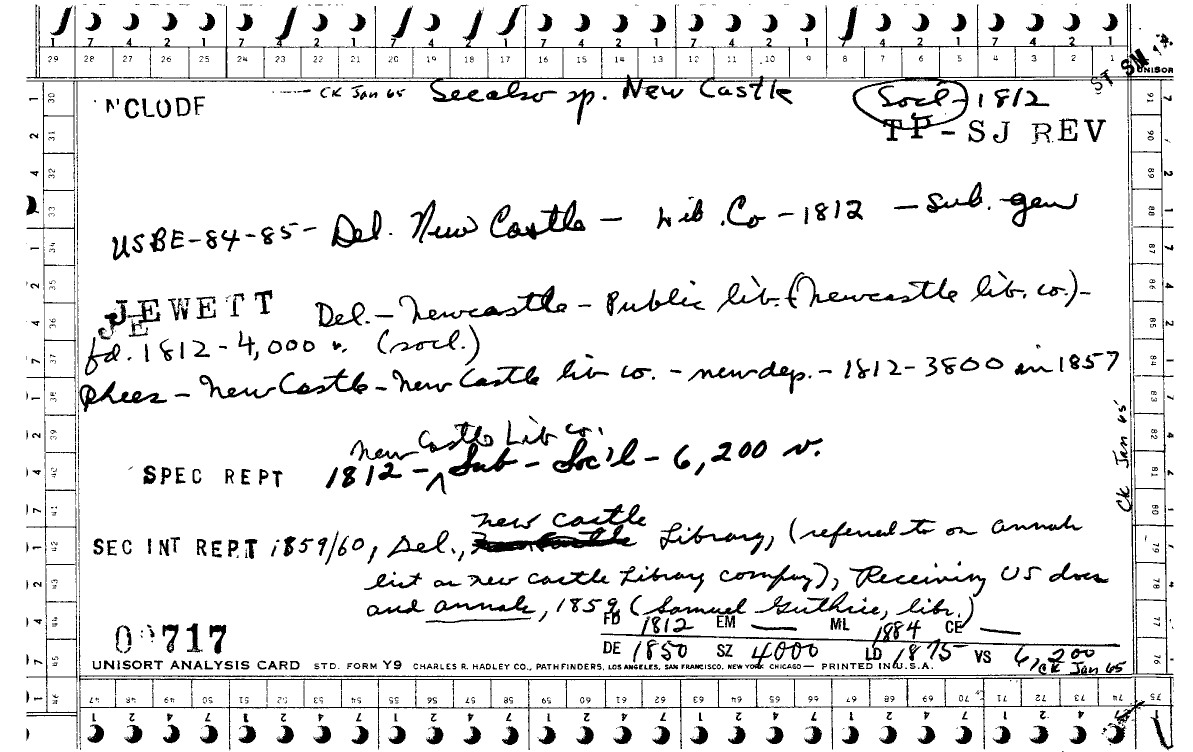 7 4 2 1 7 4 2 1 7 4 2 1 7 4 2 1 7 4 2 1 7 4 2 1 7 4 2 1
29 28 27 26 25 24 23 22 21 20 19 18 17 16 15 14 13 12 11 10 9 8 7 6 5 4 3 2 1 UNISOR
ST SN
CK Jan 65 See also sp. New Castle Soc'l - 1812
NCLODE
TP-SJ REV
USBE-84-85- Del. New Castle - Lib. Co - 1812 - sub. - gen
JEWETT Del. - Newcastle - Public lib. (Newcastle lib. co.) -
JE
fd. 1812 - 4,000 v. (socl.)
Rhees - New Castle - New Castle lib co. - new dep. - 1812 - 3800 in 1857
New Castle Lib co.
SPEC REPT 1812 - ^ Sub - Soc'l - 6,200 v.
CK Jan 65
new castle
SEC INT REPT 1859/60, Del., Library, (referred to on annals
list as new castle Library company), Receiving US docs
and annals, 1859 (Samuel Guthrie, libr.)
FD 1812 EM — ML 1884 CE —
717
DE 1850 SZ 4000 LD 1875 VS 6,200
CK Jan 65
UNISORT ANALYSIS CARD STD. FORM Y9 CHARLES R. HADLEY CO., PATHFINDERS, LOS ANGELES, SAN FRANCISCO, NEW YORK CHICAGO — PRINTED IN U.S.A.
47 48 49 50 51 52 53 54 55 56 57 58 59 60 61 62 63 64 65 66 67 68 69 70 71 72 73 74 75
1 2 4 7 1 2 4 7 1 2 4 7 1 2 4 7 1 2 4 7 1 2 4 7 1 2 4 7